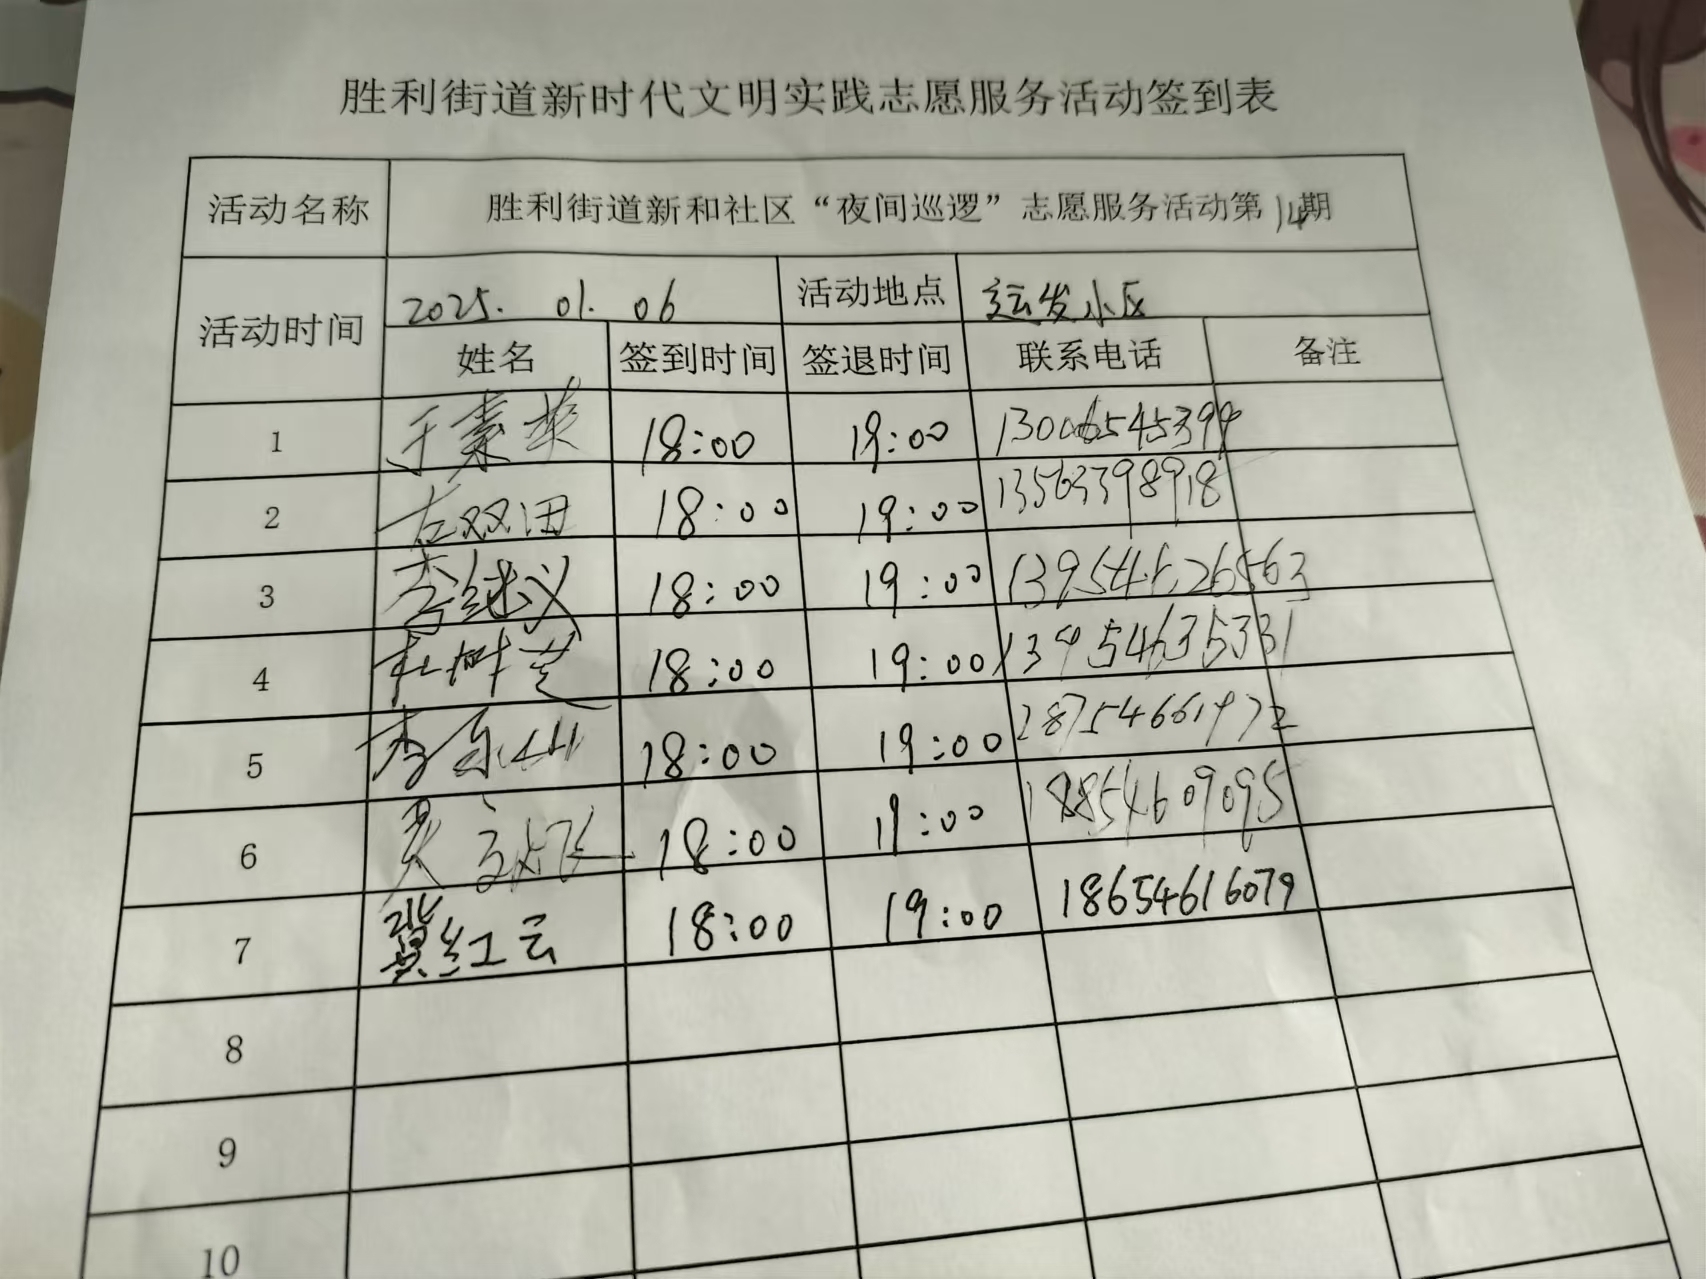 胜利街道新时代文明实践志愿服务活动签到表
活动名称 胜利街道新和社区“夜间巡逻”志愿服务活动第14期
活动时间 2025. 01. 06 活动地点 运发小区
姓名 签到时间 签退时间 联系电话 备注
1 于素英 18:00 19:00
2 左双田 18:00 19:00 13563398918
3 李继义 18:00 19:00
4 杜树芝 18:00 19:00 13954635331
5 18:00 19:00 18754661972
6 18:00 19:00 18854609095
7 冀红云 18:00 19:00 18654616079
8
9
10